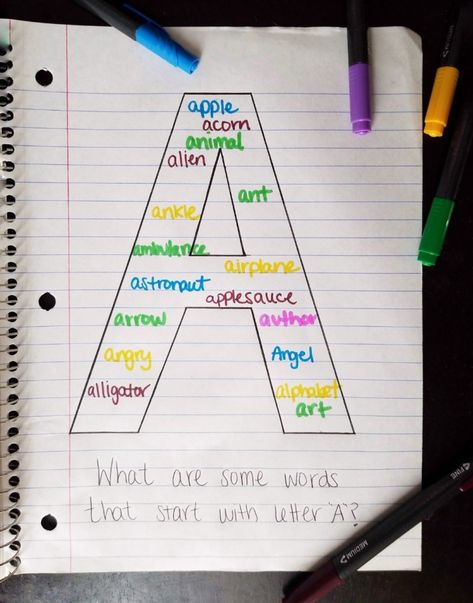 apple
acorn
animal
alien
ant
ankle
ambulance
airplane
astronaut
applesauce
arrow
author
angry
Angel
alligator
alphabet
art
What are some words
that start with letter "A"?
FINE
MEDIUM